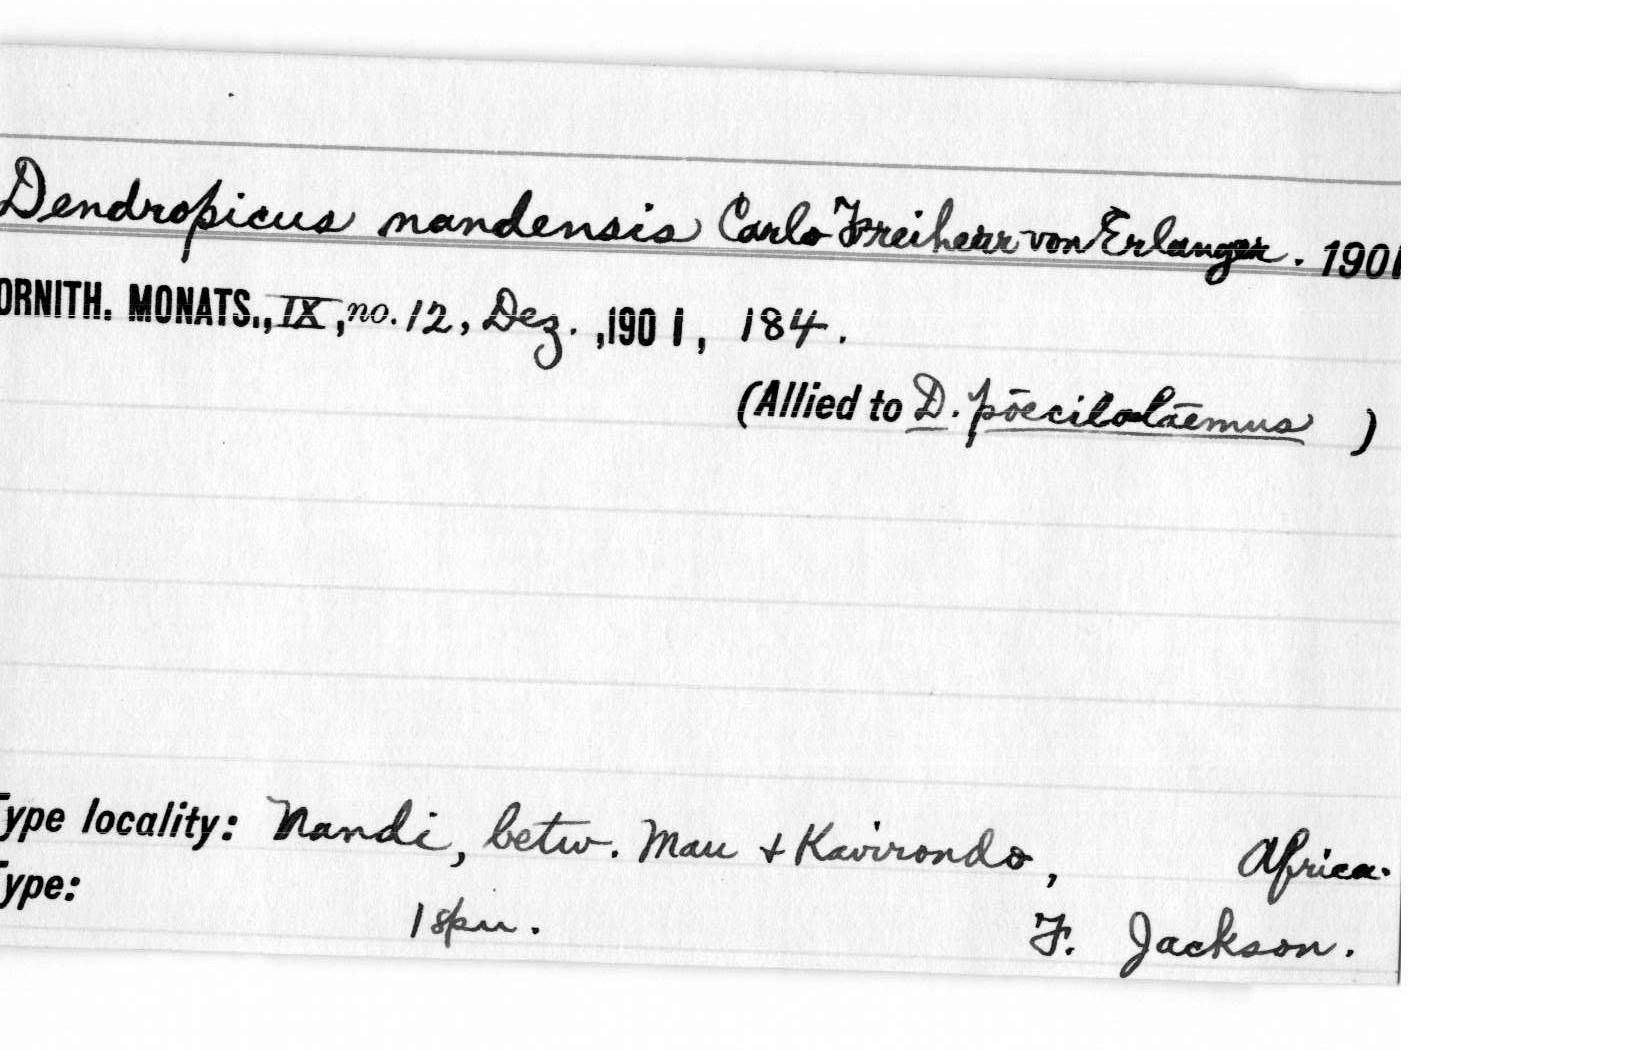 Dendropicus nandensis Carlo Freiherr von Erlanger. 1901
ORNITH. MONATS., IX, no. 12, Dez. , 1901, 184.
(Allied to D. pōecilolāemus )
Type locality: Nandi, betw. Mau + Kavirondo, Africa.
Type: 1 spm. F. Jackson.